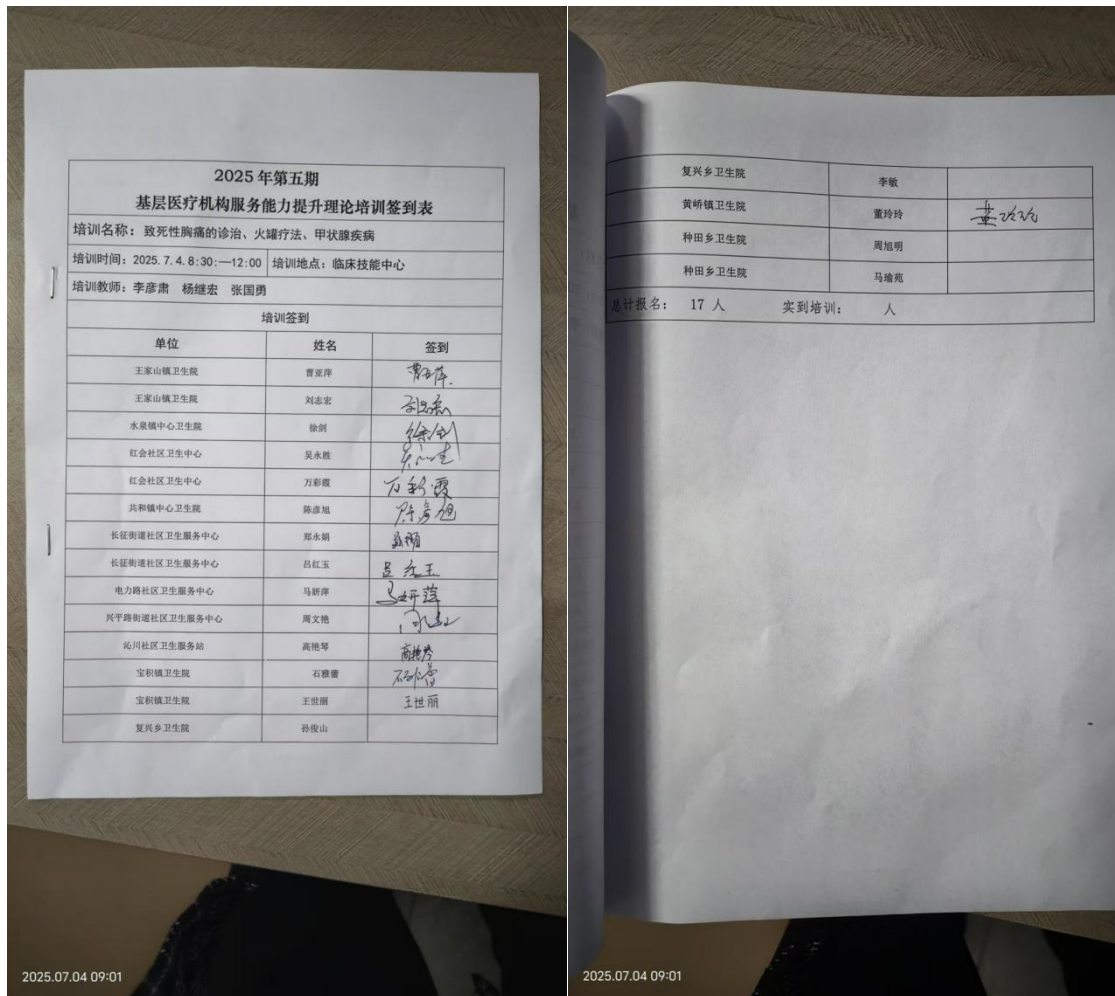 2025年第五期
基层医疗机构服务能力提升理论培训签到表
培训名称：致死性胸痛的诊治、火罐疗法、甲状腺疾病
培训时间：2025.7.4.8:30:—12:00 培训地点：临床技能中心
培训教师：李彦肃 杨继宏 张国勇
培训签到
单位 姓名 签到
王家山镇卫生院 曹亚萍 曹亚萍
王家山镇卫生院 刘志宏 刘志宏
水泉镇中心卫生院 徐剑 徐剑
红会社区卫生中心 吴永胜
红会社区卫生中心 万彩霞 万彩霞
共和镇中心卫生院 陈彦旭 陈彦旭
长征街道社区卫生服务中心 郑永娟
长征街道社区卫生服务中心 吕红玉 吕红玉
电力路社区卫生服务中心 马妍萍 马妍萍
兴平路街道社区卫生服务中心 周文艳
沁川社区卫生服务站 高艳琴 高艳琴
宝积镇卫生院 石雅蕾 石雅蕾
宝积镇卫生院 王世丽 王世丽
复兴乡卫生院 孙俊山
2025.07.04 09:01
复兴乡卫生院 李敏
黄峤镇卫生院 董玲玲 董玲玲
种田乡卫生院 周旭明
种田乡卫生院 马瑜苑
总计报名： 17 人 实到培训： 人
2025.07.04 09:01